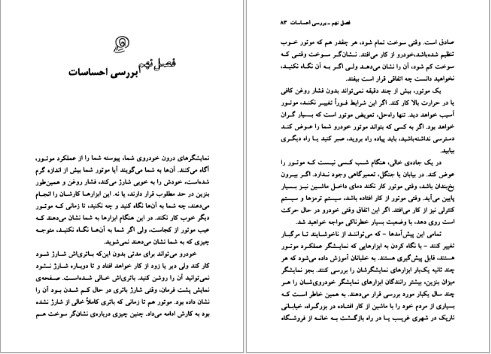 فصل نهم
بررسی احساسات
نمایشگرهای درون خودروی شما، پیوسته شما را از عملکرد موتور،
آگاه می‌کنند. آن‌ها به شما می‌گویند آیا موتور شما بیش از اندازه گرم
شده‌است، خودش را به خوبی شارژ می‌کند، فشار روغن و همین‌طور
بنزین در حد مطلوب قرار دارند، یا نه. این ابزارها کارشان را انجام
می‌دهند، خواه شما به آن‌ها نگاه کنید یا نکنید، تا زمانی که موتور
دیگر خوب کار نکند. در این هنگام ابزارها به شما نشان می‌دهند که
عیب موتور از کجاست، ولی اگر شما به آن‌ها نگاه نکنید، متوجه
چیزی که به شما نشان می‌دهند نمی‌شوید.
خودرو می‌تواند برای مدتی بدون این‌که باتری‌اش شارژ شود
کار کند ولی دیر یا زود از کار خواهد افتاد و تا دوباره شارژ نشود
نمی‌توانید آن را روشن کنید. باتری‌اش خالی شده‌است. صفحه‌ی
نمایش پشت فرمان، وقتی شارژ باتری در حال کم شدن بود آن را
نشان داده بود. موتور هم تا زمانی که باتری کاملاً خالی از شارژ نشده
بود به کارش ادامه می‌داد. چنین چیزی درباره‌ی نشان‌گر سوخت هم
فصل نهم ـ بررسی احساسات ۸۳
صادق است. وقتی سوخت تمام شود، هر چقدر هم که موتور خوب
تنظیم شده‌باشد،خودرو از کار می‌افتد. نشان‌گر سوخت وقتی که
سوخت کم شود، آن را نشان می‌دهد ولی اگر به آن نگاه نکنید،
نخواهید دانست چه اتفاقی قرار است بیفتد.
یک موتور، بیش از چند دقیقه نمی‌تواند بدون فشار روغن کافی
یا در حرارت بالا کار کند. اگر این شرایط فوراً تغییر نکند، موتور
آسیب خواهد دید. تنها راه‌حل، تعویض موتور است که بسیار گران
خواهد بود. اگر به کسی که بتواند موتور خودرو شما را عوض کند
دسترسی نداشته‌باشید، باید پیاده راه بروید، صبر کنید یا راه دیگری
بیابید.
در یک جاده‌ی خالی، هنگام شب، کسی نیست که موتور را
عوض کند. در بیابان یا جنگل، تعمیرگاهی وجود ندارد. اگر بیرون
یخ‌بندان باشد، وقتی موتور کار نکند دمای داخل ماشین نیز بسیار
پایین می‌آید. وقتی موتور از کار افتاده باشد، سیستم ترمزها و سیستم
کنترلی نیز از کار می‌افتند. اگر این اتفاق وقتی خودرو در حال حرکت
است روی دهد، با وضعیت بسیار خطرناکی مواجه خواهید شد.
تمامی این پیش‌آمدها - که می‌توانند از ناخوشایند تا مرگبار
تغییر کنند - با نگاه کردن به ابزارهایی که نمایشگر عملکرد موتور
هستند، قابل پیش‌گیری هستند. به خلبانان آموزش داده می‌شود که هر
چند ثانیه یک‌بار ابزارهای نمایشگرشان را بررسی کنند. بجز نمایشگر
میزان بنزین، بیشتر رانندگان ابزارهای نمایشگر خودروی‌شان را هر
چند سال یکبار مورد بررسی قرار می‌دهند. به همین خاطر است که
بسیاری از مردم خود را با ماشین از کار افتاده در بزرگراه، خیابانی
تاریک در شهری غریب یا در راه بازگشت به خانه از فروشگاه